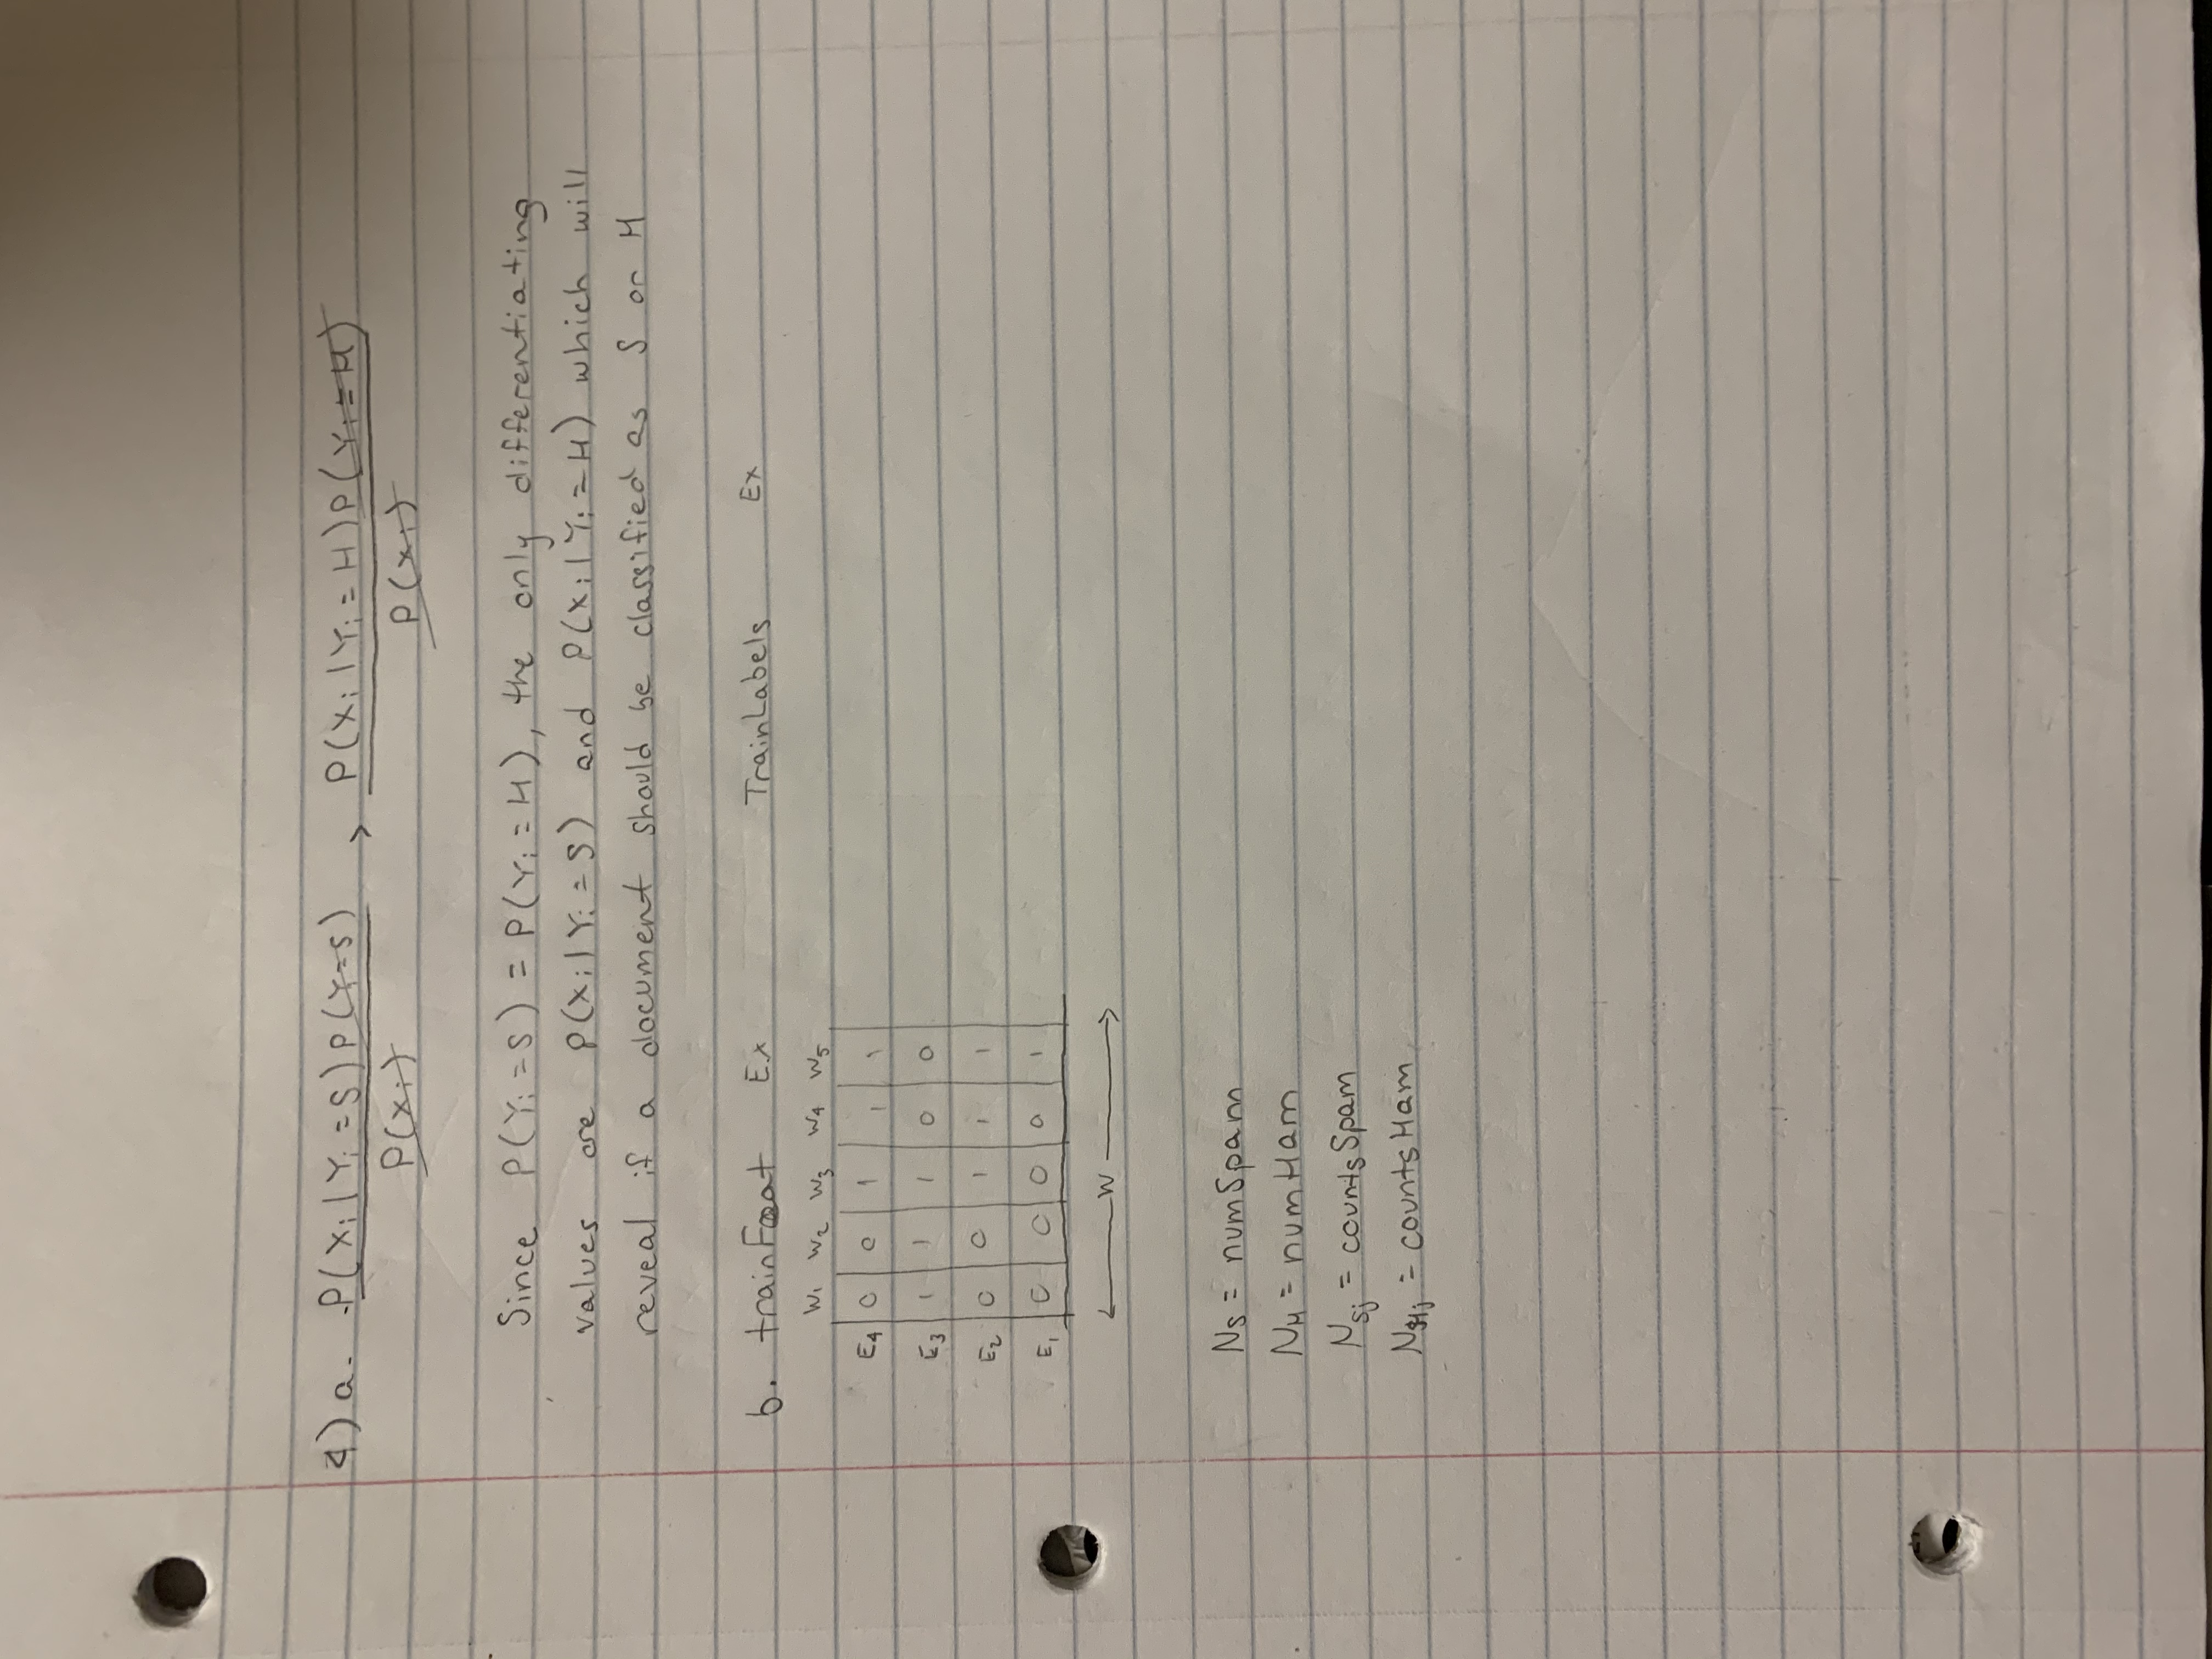 4) a. P(Xi | Yi = S) P(Y=S) > P(Xi | Yi = H) P(Yi = H)
P(Xi) P(Xi)
Since P(Yi = S) = P(Yi = H), the only differentiating
values are P(Xi | Yi = S) and P(Xi | Yi = H) which will
reveal if a document should be classified as S or H
b. trainFeat Ex TrainLabels Ex
W1 W2 W3 W4 W5
E4 0 0 1 1 1
E3 1 1 1 0 0
E2 0 0 1 1 1
E1 0 0 0 0 1
W
NS = numSpam
NH = numHam
NSj = countsSpam
NHj = countsHam